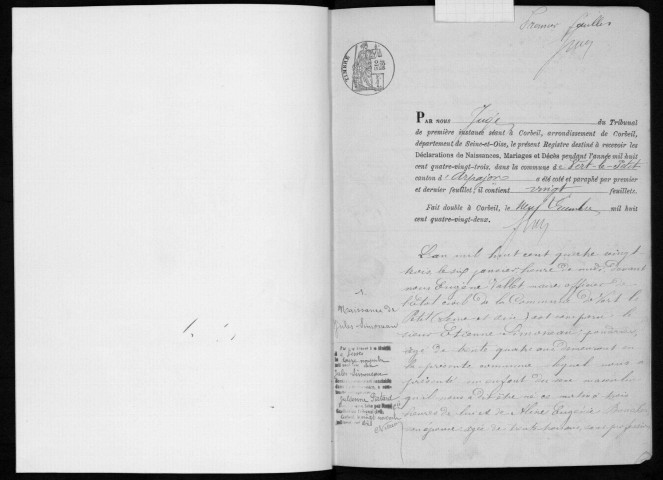 Premier feuillet
TIMBRE
PAR NOUS Juge du Tribunal
de première instance séant à Corbeil, arrondissement de Corbeil,
département de Seine-et-Oise, le présent Registre destiné à recevoir les
Déclarations de Naissances, Mariages et Décès pendant l'année mil huit
cent quatre-vingt-trois, dans la commune d Vert-le-Petit
canton d'Arpajon a été coté et paraphé par premier
et dernier feuillet; il contient vingt feuillets.
Fait double à Corbeil, le neuf Décembre mil huit
cent quatre-vingt-deux.
L'an mil huit cent quatre vingt
trois le six janvier heure de midi, devant
nous Eugène Vallet maire officier de
l'état civil de la Commune de Vert le
Petit (Seine et Oise) est comparu le
sieur Simoneau poudrier,
âgé de trente quatre ans demeurant en
la présente commune lequel nous a
présenté un enfant du sexe masculin
qu'il nous a dit être né ce matin à trois
heures de lui et de Eugénie
son épouse âgée de trente ans, sans profession
1
Naissance de
Jules Simoneau
Jules Simoneau
Julienne